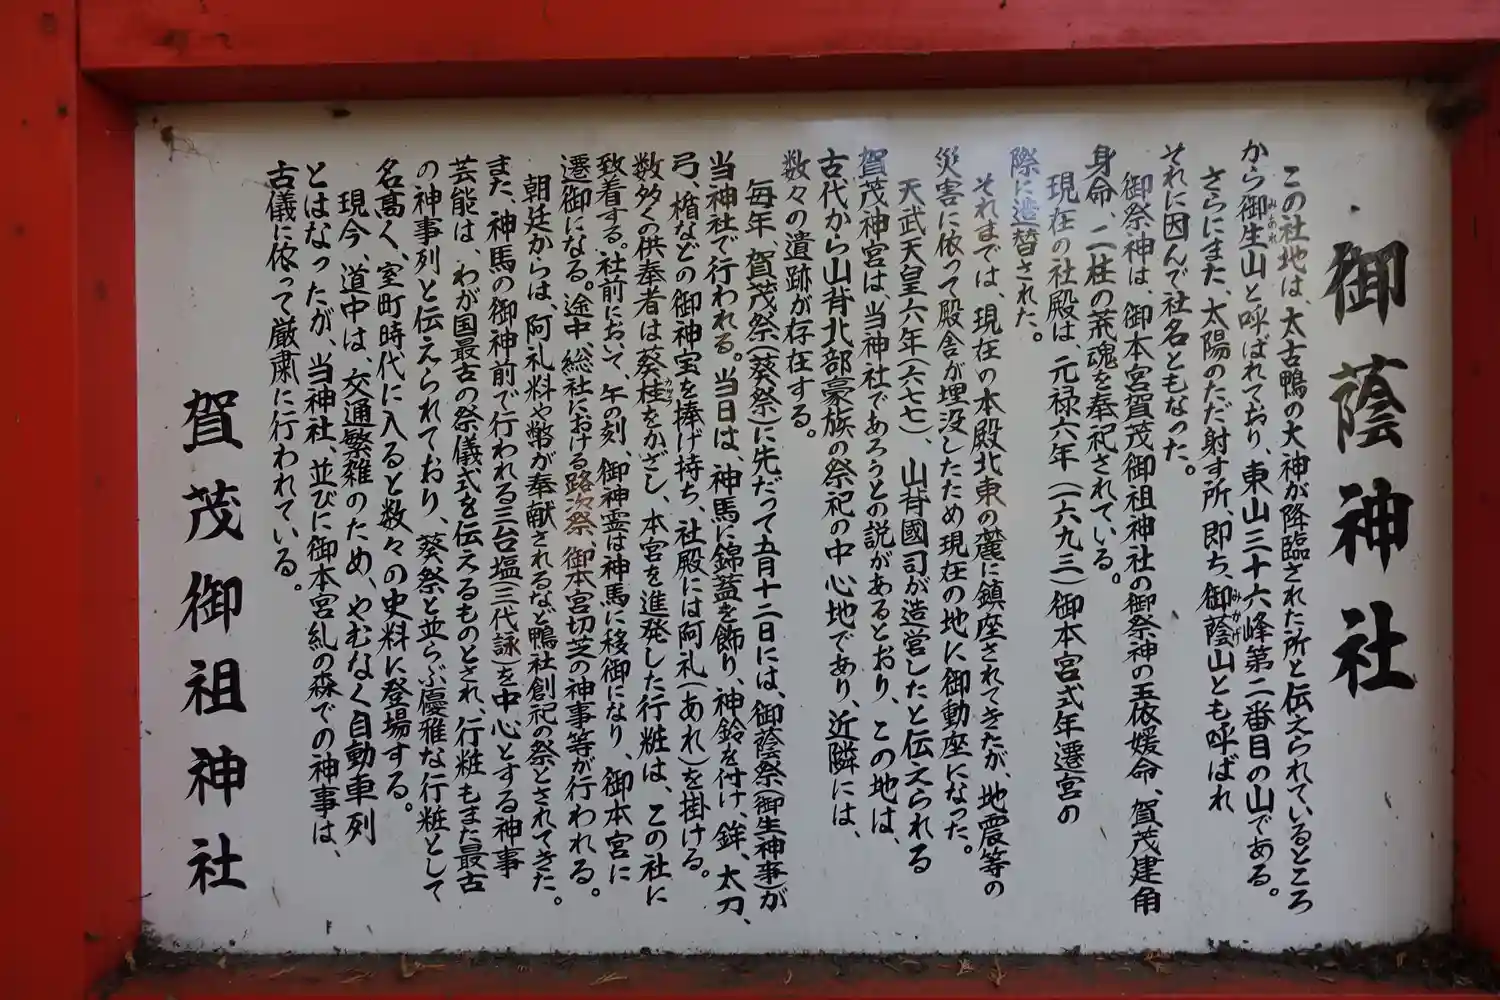 御蔭神社
この社地は、太古鴨の大神が降臨された所と伝えられているところ
から御生山と呼ばれており、東山三十六峰第二番目の山である。
みあれ
さらにまた、太陽のただ射す所、即ち、御蔭山とも呼ばれ
みかげ
それに因んで社名ともなった。
御祭神は、御本宮賀茂御祖神社の御祭神の玉依媛命、賀茂建角
身命、二柱の荒魂を奉祀されている。
現在の社殿は、元禄六年(一六九三)御本宮式年遷宮の
際に造替された。
それまでは、現在の本殿北東の麓に鎮座されてきたが、地震等の
災害に依って殿舎が埋没したため現在の地に御動座になった。
天武天皇六年(六七七)、山背國司が造営したと伝えられる
賀茂神宮は、当神社であろうとの説があるとおり、この地は、
古代から山背北部豪族の祭祀の中心地であり、近隣には、
数々の遺跡が存在する。
毎年、賀茂祭(葵祭)に先だって五月十二日には、御蔭祭(御生神事)が
当神社で行われる。当日は、神馬に錦蓋を飾り、神鈴を付け、鉾、太刀、
弓、楯などの御神宝を捧げ持ち、社殿には阿礼(あれ)を掛ける。
数多くの供奉者は葵桂をかざし、本宮を進発した行粧は、この社に
カツラ
致着する。社前において、午の刻、御神霊は神馬に移御になり、御本宮に
遷御になる。途中、総社における路次祭、御本宮切芝の神事等が行われる。
朝廷からは、阿礼料や幣が奉献されるなど鴨社創祀の祭とされてきた。
また、神馬の御神前で行われる三台塩三代詠)を中心とする神事
芸能は、わが国最古の祭儀式を伝えるものとされ、行粧もまた最古
の神事列と伝えられており、葵祭と並らぶ優雅な行粧として
名高く、室町時代に入ると数々の史料に登場する。
現今、道中は、交通繁雑のため、やむなく自動車列
とはなったが、当神社、並びに御本宮糺の森での神事は、
古儀に依って厳粛に行われている。
賀茂御祖神社